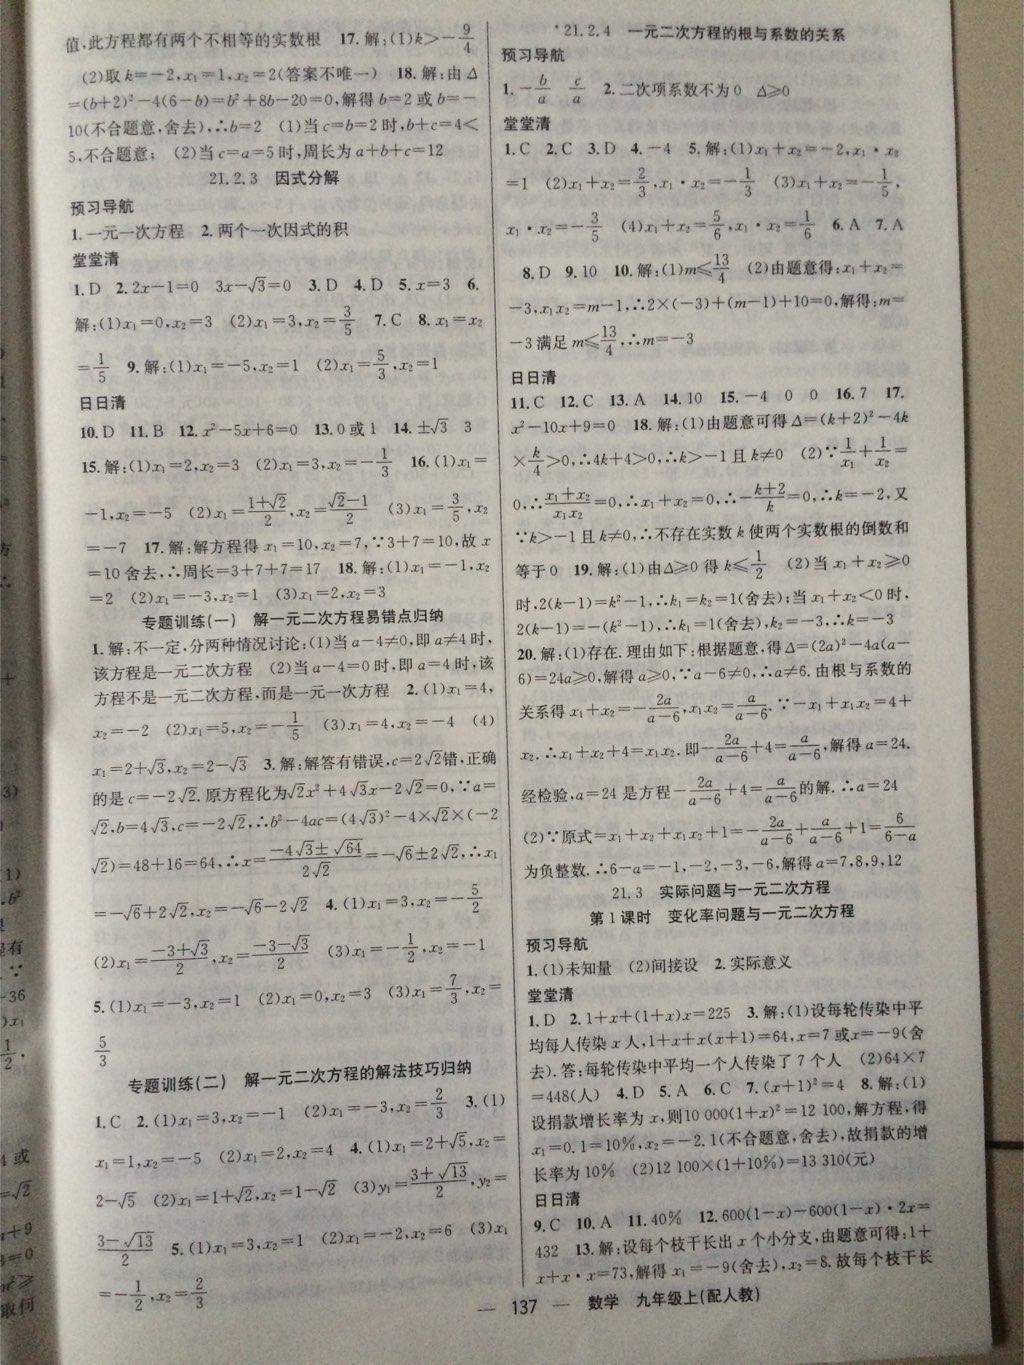 值,此方程都有两个不相等的实数根 17.解:(1)k>-9/4
(2)取k=-2,x₁=1,x₂=2(答案不唯一) 18.解:由Δ
=(b+2)²-4(6-b)=b²+8b-20=0,解得b=2或b=-
10(不合题意,舍去),∴b=2 (1)当c=b=2时,b+c=4<
5,不合题意; (2)当c=a=5时,周长为a+b+c=12
21.2.3 因式分解
预习导航
1.一元一次方程 2.两个一次因式的积
堂堂清
1.D 2.2x-1=0 3x-√3=0 3.D 4.D 5.x=3 6.
解:(1)x₁=0,x₂=3 (2)x₁=3,x₂=3/5 7.C 8.x₁=x₂
=1/5 9.解:(1)x₁=-5,x₂=1 (2)x₁=5/3,x₂=1
日日清
10.D 11.B 12.x²-5x+6=0 13.0或1 14.±√3 3
15.解:(1)x₁=2,x₂=3 (2)x₁=3,x₂=-1/3 16.(1)x₁=
-1,x₂=-5 (2)x₁=(1+√2)/2,x₂=(√2-1)/2 (3)x₁=3/5,x₂
=-7 17.解:解方程得x₁=10,x₂=7,∵3+7=10,故x
=10舍去,∴周长=3+7+7=17 18.解:(1)x₁=-1,x₂
=2 (2)x₁=-3,x₂=1 (3)x₁=2,x₂=3
专题训练(一) 解一元二次方程易错点归纳
1.解:不一定,分两种情况讨论:(1)当a-4≠0,即a≠4时,
该方程是一元二次方程 (2)当a-4=0时,即a=4时,该
方程不是一元二次方程,而是一元一次方程 2.(1)x₁=4,
x₂=-2 (2)x₁=5,x₂=-1/5 (3)x₁=4,x₂=-4 (4)
x₁=2+√3,x₂=2-√3 3.解:解答有错误,c=2√2错,正确
的是c=-2√2.原方程化为√2x²+4√3x-2√2=0,∵a=
√2,b=4√3,c=-2√2,∴b²-4ac=(4√3)²-4×√2×(-2
√2)=48+16=64,∴x=(-4√3±√64)/(2√2)=-√6±2√2,∴x₁
=-√6+2√2,x₂=-√6-2√2 4.(1)x₁=3,x₂=-5/2
(2)x₁=(-3+√3)/2,x₂=(-3-√3)/2 (3)x₁=-1/2,x₂=-1
5.(1)x₁=-3,x₂=1 (2)x₁=0,x₂=3 (3)x₁=7/3,x₂=
5/3
专题训练(二) 解一元二次方程的解法技巧归纳
1.C 2.(1)x₁=3,x₂=-1 (2)x₁=-3,x₂=2/3 3.(1)
x₁=1,x₂=-5 (2)x₁=2,x₂=4 4.(1)x₁=2+√5,x₂=
2-√5 (2)x₁=1+√2,x₂=1-√2 (3)y₁=(3+√13)/2,y₂=
(3-√13)/2 5.(1)x₁=3,x₂=1 (2)x₁=-2,x₂=6 (3)x₁
=-1/2,x₂=2/3
*21.2.4 一元二次方程的根与系数的关系
预习导航
1.-b/a c/a 2.二次项系数不为0 Δ≥0
堂堂清
1.C 2.C 3.D 4.-4 5.解:(1)x₁+x₂=-2,x₁·x₂
=1 (2)x₁+x₂=2/3,x₁·x₂=-1/3 (3)x₁+x₂=-1/5,
x₁·x₂=-3/5 (4)x₁+x₂=5/6,x₁·x₂=1/6 6.A 7.A
8.D 9.10 10.解:(1)m≤13/4 (2)由题意得:x₁+x₂=
-3,x₁x₂=m-1,∴2×(-3)+(m-1)+10=0,解得:m=
-3满足m≤13/4,∴m=-3
日日清
11.C 12.C 13.A 14.10 15.-4 0 0 16.7 17.
x²-10x+9=0 18.解:(1)由题意可得Δ=(k+2)²-4k
×k/4>0,∴4k+4>0,∴k>-1且k≠0 (2)∵1/x₁+1/x₂=
0,∴(x₁+x₂)/(x₁x₂)=0,∴x₁+x₂=0,∴-(k+2)/k=0,∴k=-2,又
∵k>-1且k≠0,∴不存在实数k使两个实数根的倒数和
等于0 19.解:(1)由Δ≥0得k≤1/2 (2)当x₁+x₂≥0
时,2(k-1)=k²-1,∴k₁=k₂=1(舍去);当x₁+x₂<0时,
2(k-1)=-(k²-1),∴k₁=1(舍去),k₂=-3,∴k=-3
20.解:(1)存在.理由如下:根据题意,得Δ=(2a)²-4a(a-
6)=24a≥0,解得a≥0,∵a-6≠0,∴a≠6.由根与系数的
关系得x₁+x₂=-2a/(a-6),x₁x₂=a/(a-6).∵-x₁+x₁x₂=4+
x₂.∴x₁+x₂+4=x₁x₂.即-2a/(a-6)+4=a/(a-6),解得a=24.
经检验,a=24是方程-2a/(a-6)+4=a/(a-6)的解.∴a=24
(2)∵原式=x₁+x₂+x₁x₂+1=-2a/(a-6)+a/(a-6)+1=6/(6-a)
为负整数.∴6-a=-1,-2,-3,-6,解得a=7,8,9,12
21.3 实际问题与一元二次方程
第1课时 变化率问题与一元二次方程
预习导航
1.(1)未知量 (2)间接设 2.实际意义
堂堂清
1.D 2.1+x+(1+x)x=225 3.解:(1)设每轮传染中平
均每人传染x人,1+x+x(x+1)=64,x=7或x=-9(舍
去).答:每轮传染中平均一个人传染了7个人 (2)64×7
=448(人) 4.D 5.A 6.C 7.(x+1)²=4 8.解:(1)
设捐款增长率为x,则10 000(1+x)²=12 100,解方程,得
x₁=0.1=10%,x₂=-2.1(不合题意,舍去),故捐款的增
长率为10% (2)12 100×(1+10%)=13 310(元)
日日清
9.C 10.A 11.40% 12.600(1-x)-600(1-x)·2x=
432 13.解:设每个枝干长出x个小分支,由题意可得:1+
x+x·x=73,解得x₁=-9(舍去),x₂=8.故每个枝干长
— 137 — 数学 九年级上(配人教)